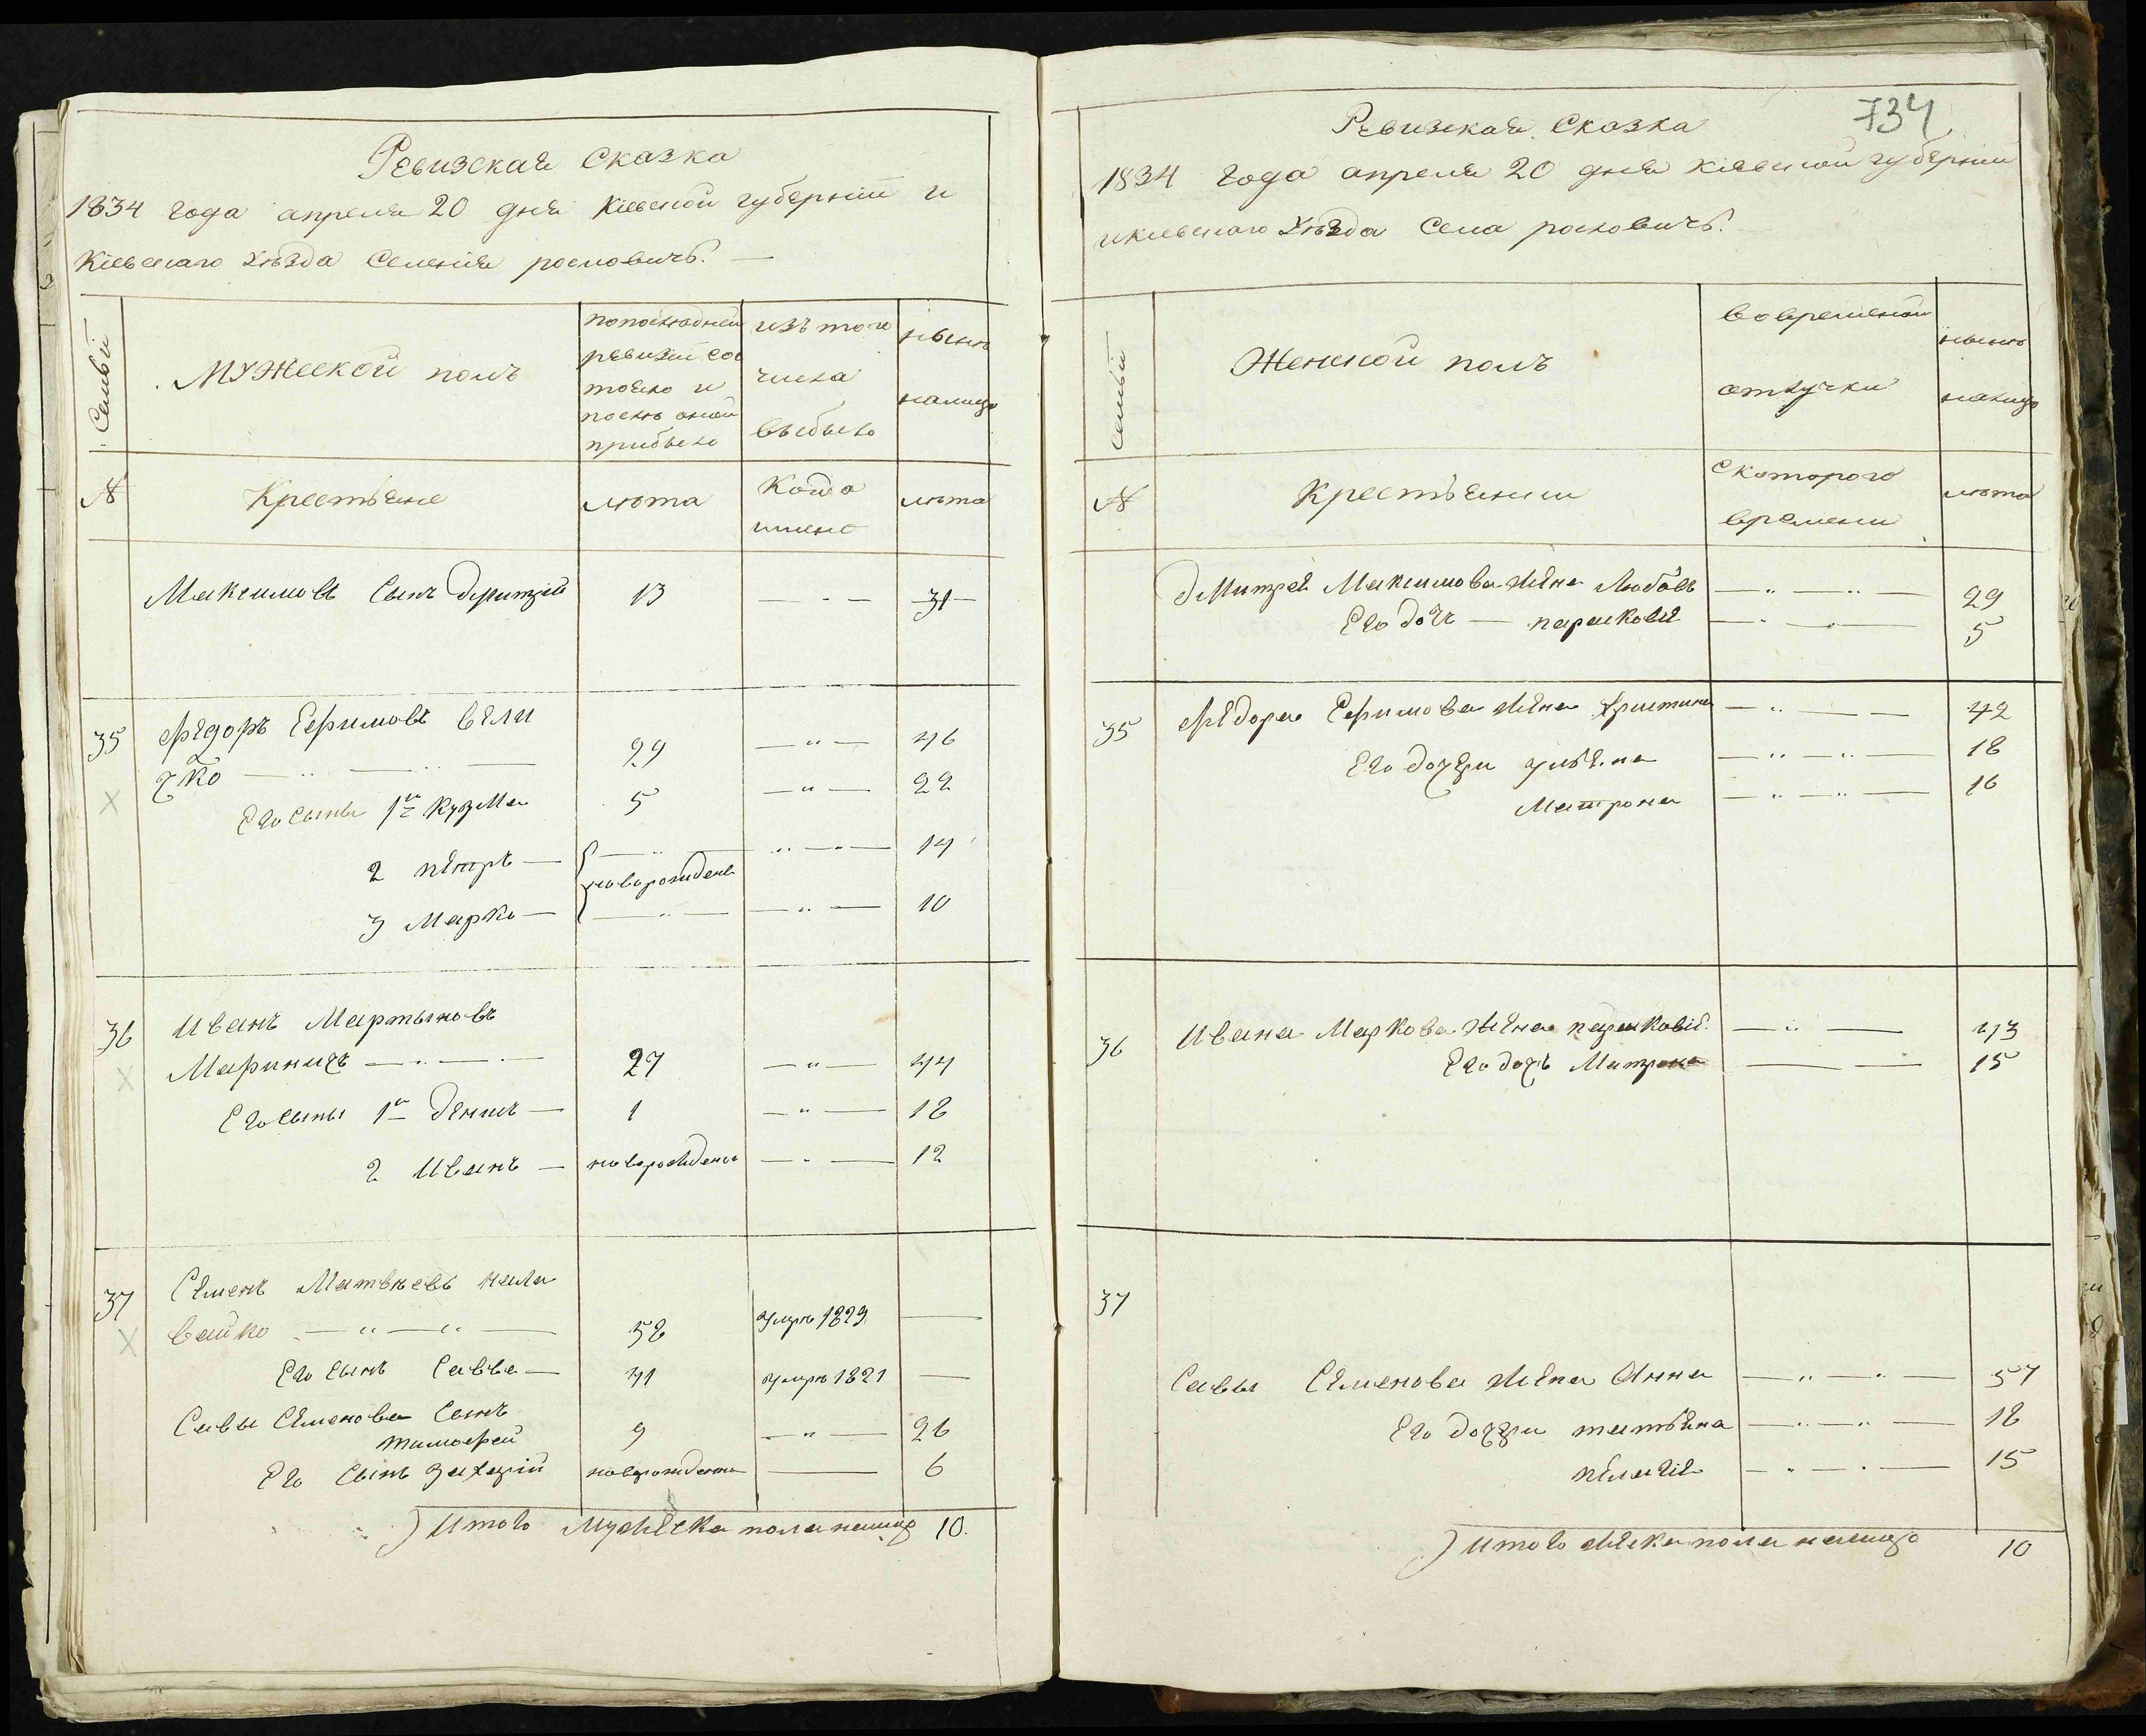 Ревизская Сказка
1834 года апреля 20 дня Кіевской губерніи и
Кіевскаго Уѣзда Селенія росковичъ. —
Семьи
Мужеской полъ
попоследней
ревизіи сос
тояло и
послѣ оной
прибыло
изъ того
числа
выбыло
нынѣ
налицо
№
Крестьяне
лѣта
Когда
имено
лѣта
Максимовъ Сынъ Дмитрій 13 — 31
35 Федоръ Ефимовъ вели
чко — 29 — 46
Его Сыны 1й Кузма 5 — 22
2 петръ — — 14
новорожденъ
3 Марко — — 10
36 Иванъ Мартыновъ
Мариничъ — 27 — 44
Его сыны 1й Денисъ — 1 — 18
2 Иванъ — новорожденъ — 12
37 Семенъ Матвѣевъ нали
вайко — 58 умре 1829 —
Его сынъ Савва — 41 умре 1821 —
Савы Семенова Сынъ
тимофей 9 — 26
Его Сынъ Захарій новорожденъ — 6
Итого Мужеска пола налицо 10.
734
Ревизская Сказка
1834 Года апреля 20 дня Кіевской губерніи
икіевскаго Уѣзда Села росковичъ.
Семьи
Женской полъ
Вовременой
отлучки
нынѣ
налицо
№
Крестьянки
Скоторого
времени
лѣта
Дмитрея Максимова жена Любовь — 29
Его дочъ — парасковія — 5
35 Федора Ефимова жена Христина — 42
Его дочери ульяна — 18
Матрона — 16
36 Ивана Маркова жена парасковія — 43
Его дочъ Матрона — 15
37
Савы Семенова жена Анна — 57
Его дочери татьяна — 18
пелагія — 15
Итого женска пола налицо 10